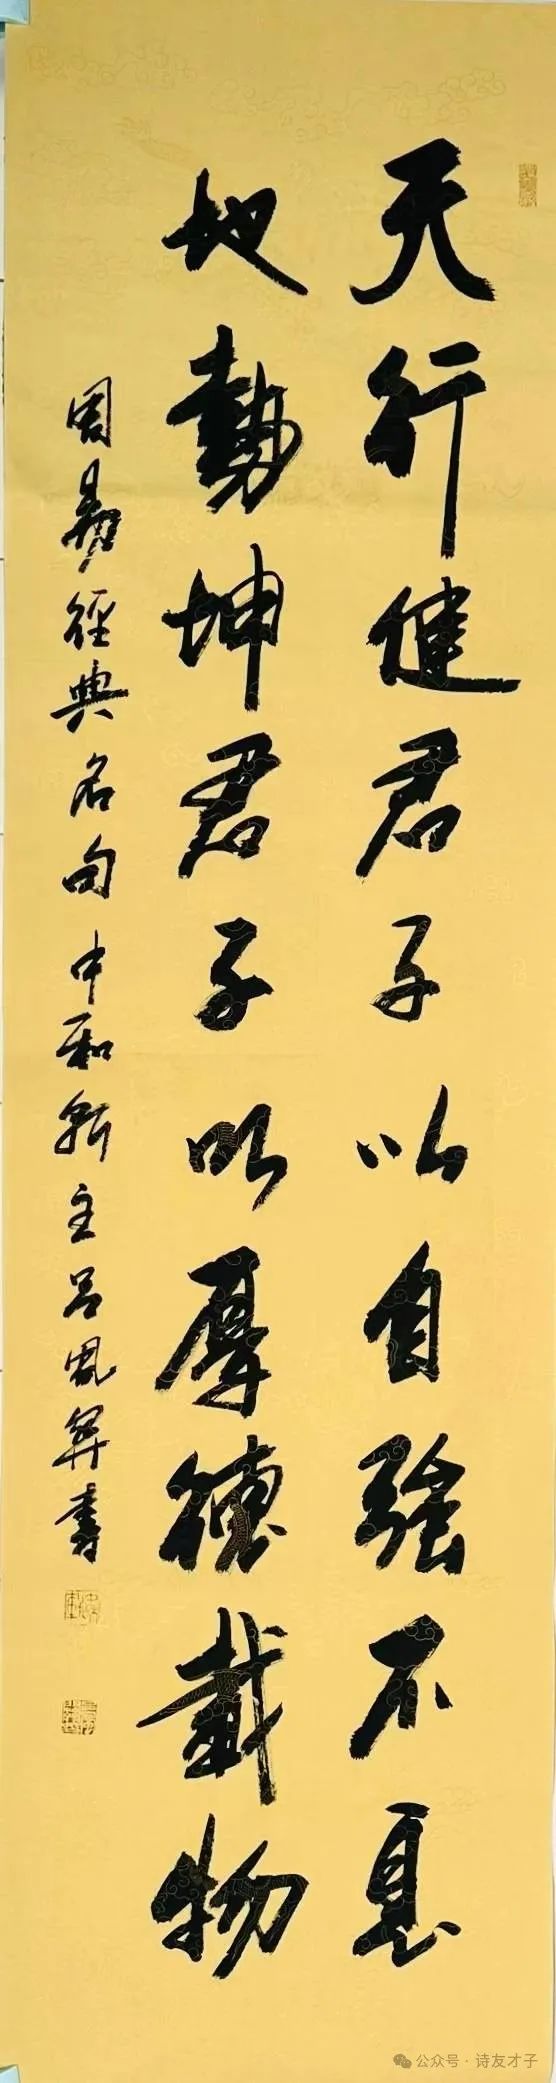 天行健君子以自强不息
地势坤君子以厚德载物
周易经典名句中和轩主吕凤弈书
公众号·诗友才子